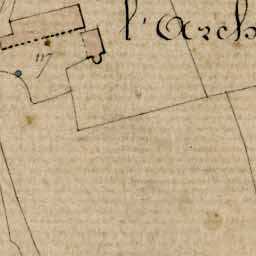 l'Arch
117